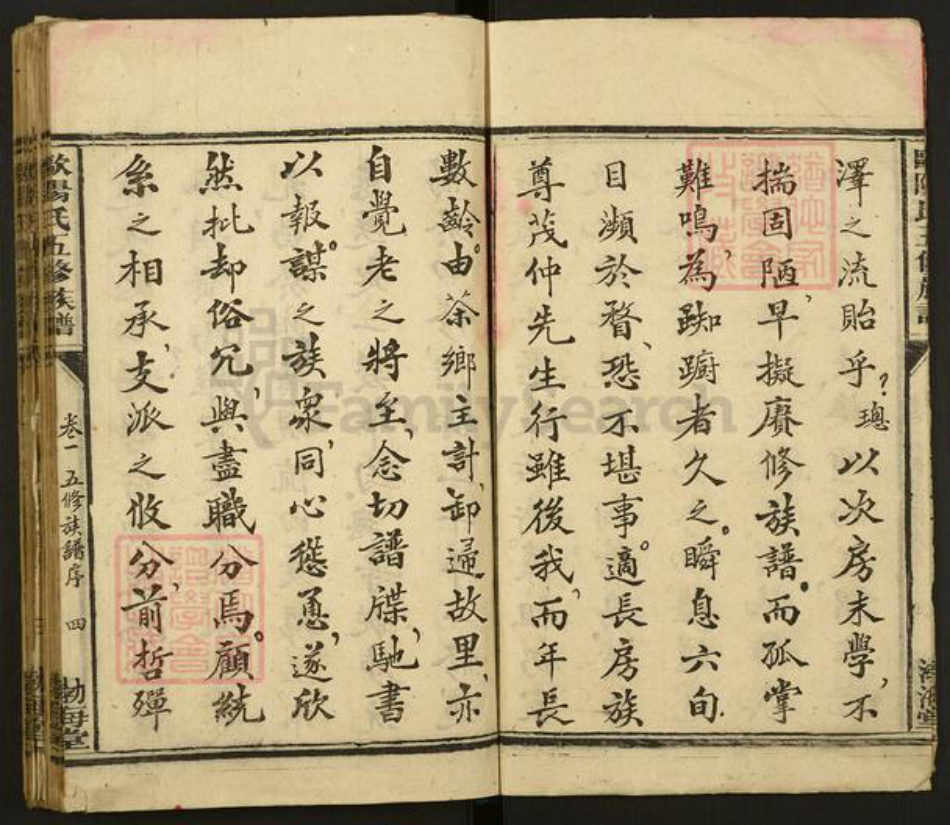 澤之流貽乎?璁以次房末學,不
揣固陋,早擬賡修族譜。而孤掌
難鳴,為踟躕者久之。瞬息六旬
目瀕於瞀、恐不堪事。適長房族
尊茂仲先生行雖後我,而年長
數齡。由茶鄉主計、卸歸故里、亦
自覺老之將至,念切譜牒,馳書
以報。謀之族衆,同心慫恿,遂欣
然批却俗冗,與盡職分焉。顧統
系之相承,支派之攸分,前哲殫
歐陽氏五修族譜
卷一 五修族譜序 四
渤海堂
FamilySearch